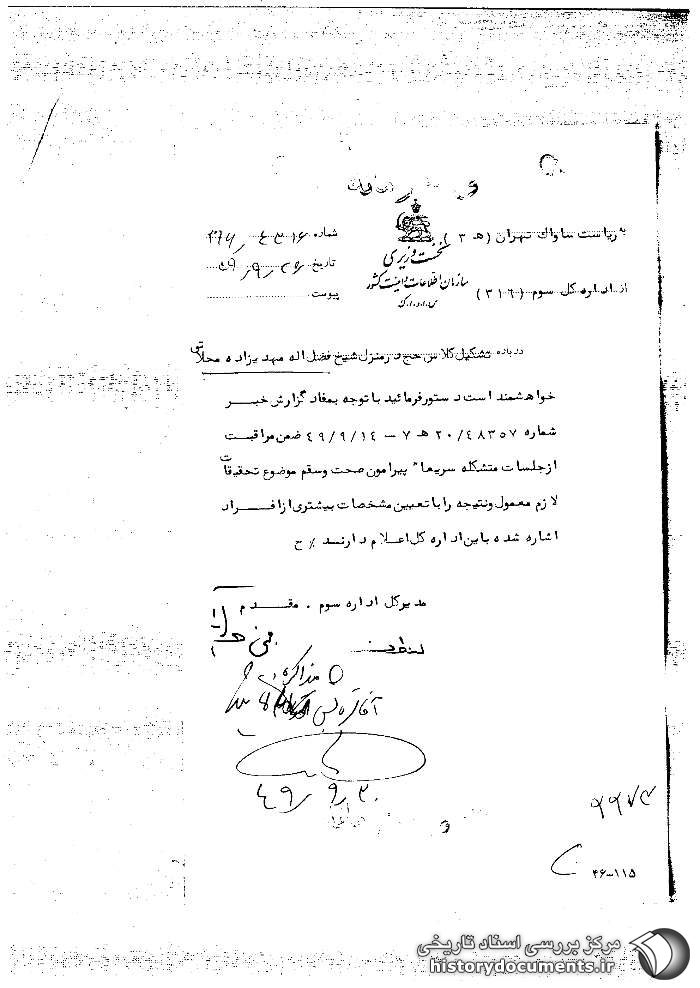 به ریاست ساواک تهران (هـ ۳)
از اداره کل سوم (۳۱۶)
نخست وزیری
سازمان اطلاعات و امنیت کشور
س.ا.و.ا.ک
شماره ۳۱۶
تاریخ ۴۹
پیوست
درباره تشکیل کلاس حج در منزل شیخ فضل اله مهدیزاده محلاتی
خواهشمند است دستور فرمائید با توجه بمفاد گزارش خبر
شماره ۲۰/۴۸۳۵۷ هـ ۷ - ۴۹/۹/۱۴ ضمن مراقبت
از جلسات متشکله سریعا" پیرامون صحت وسقم موضوع تحقیقات
لازم معمول ونتیجه را با تعیین مشخصات بیشتری از افراد
اشاره شده باین اداره کل اعلام دارند ٪ ح
مدیرکل اداره سوم . مقدم
مذاکره
۴۹/۹/۳۰
۴۶-۱۱۵
مرکز بررسی اسناد تاریخی
historydocuments.ir